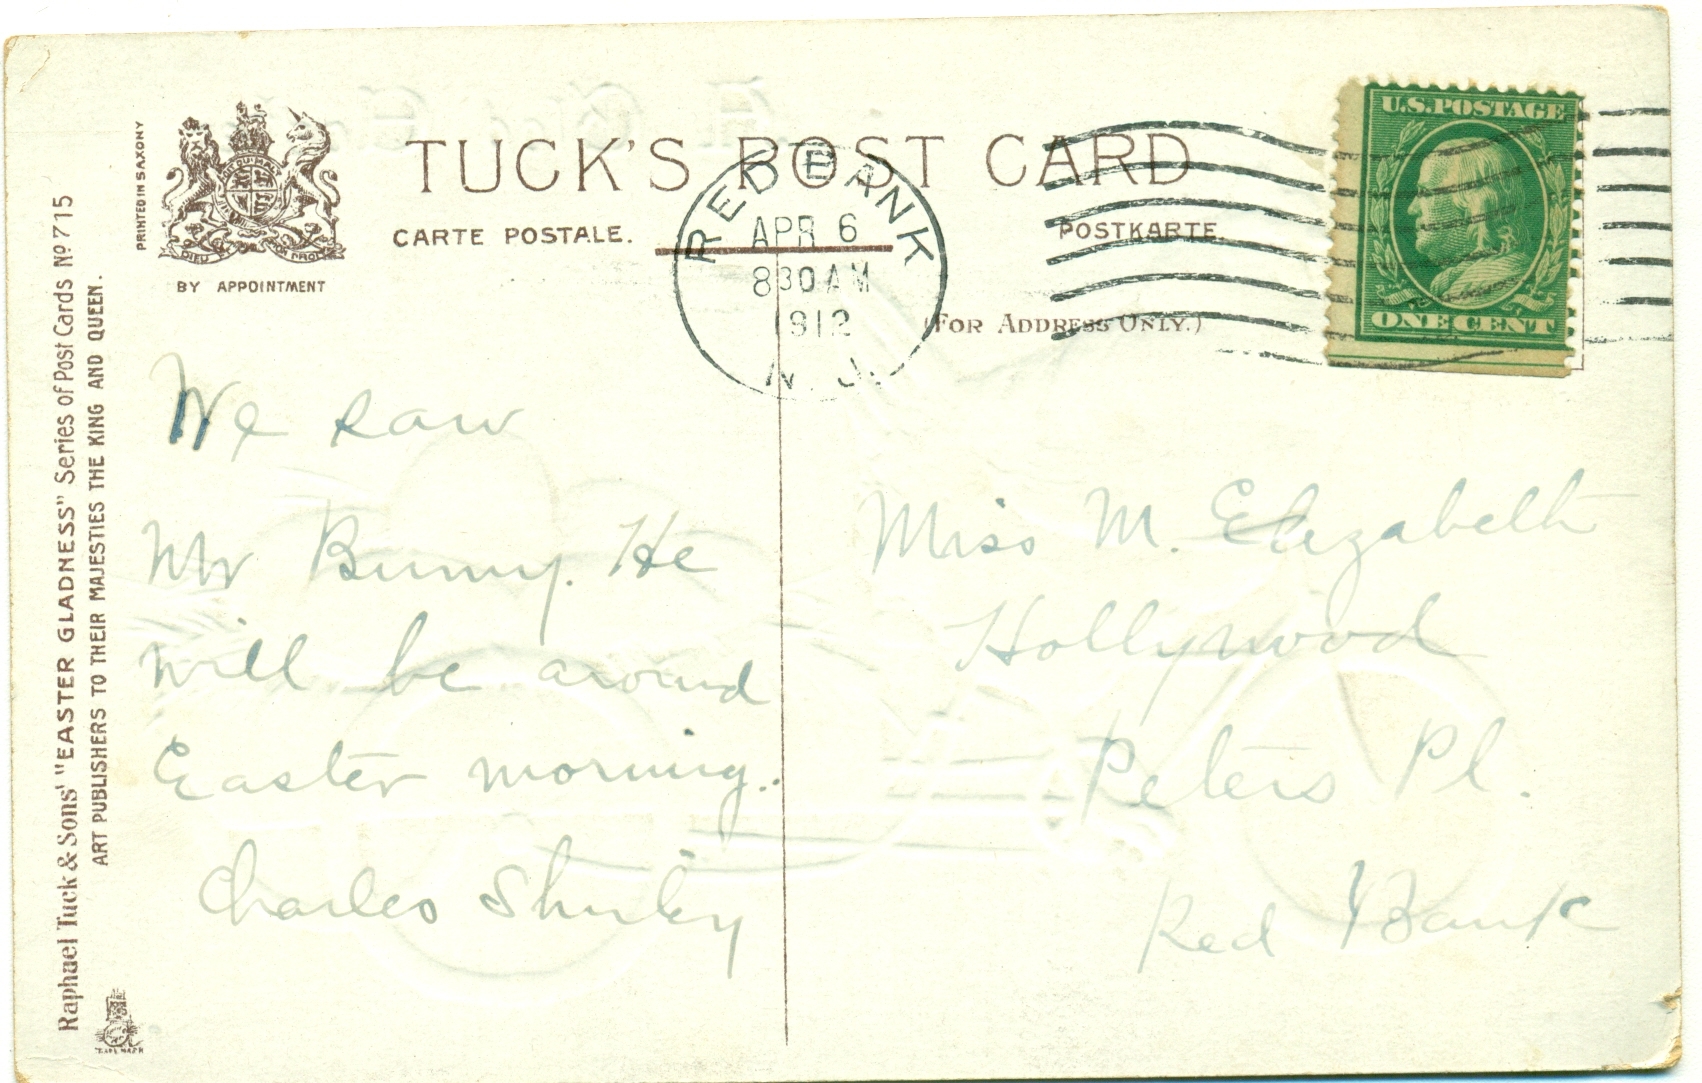 TUCK'S POST CARD
CARTE POSTALE.
POSTKARTE.
(FOR ADDRESS ONLY.)
PRINTED IN SAXONY
DIEU ET MON DROIT
BY APPOINTMENT
Raphael Tuck & Sons' "EASTER GLADNESS" Series of Post Cards No 715
ART PUBLISHERS TO THEIR MAJESTIES THE KING AND QUEEN.
RED BANK
APR 6
830 AM
1912
N.J.
U.S. POSTAGE
ONE CENT
We saw
Mr Bunny. He
will be around
Easter morning.
Charles Shirley
Miss M. Elizabeth
Hollywood
Peters Pl.
Red Bank